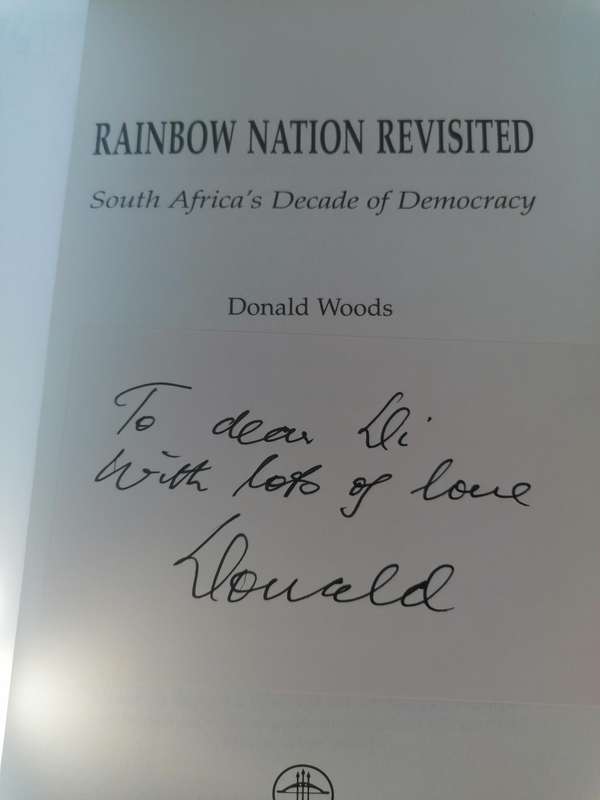 RAINBOW NATION REVISITED
South Africa's Decade of Democracy
Donald Woods
To dear Di
With lots of love
Donald